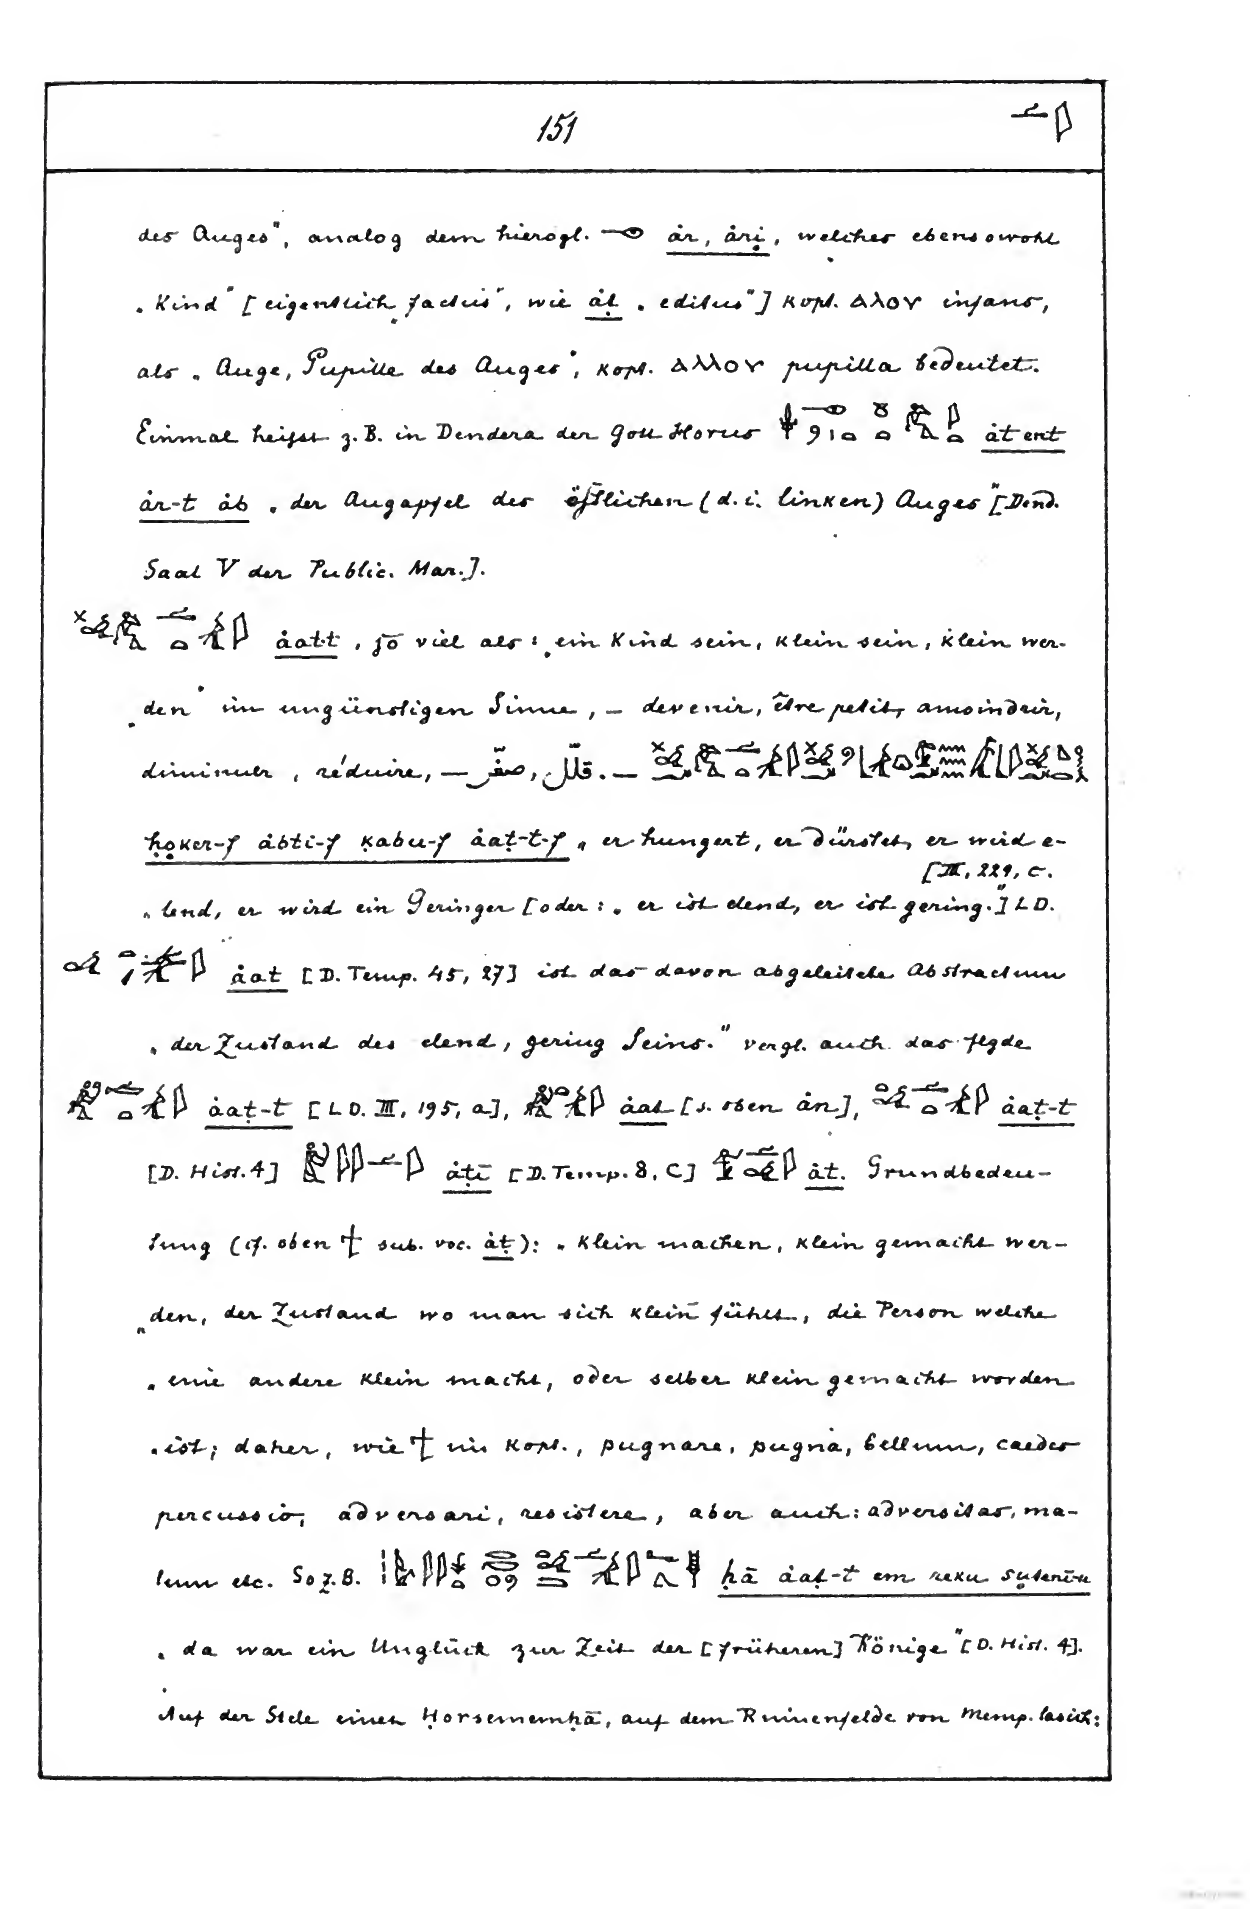 151
des Auges", analog dem hierogl. ȧr, ȧri̥, welches ebensowohl
„Kind" [eigentlich „factus", wie ȧṭ „editus"] kopt. ⲁⲗⲟⲩ infans,
als „Auge, Pupille des Auges", kopt. ⲁⲗⲗⲟⲩ pupilla bedeutet.
Einmal heisst z.B. in Dendera der Gott Horus ȧt ent
ȧr-t ȧb „der Augapfel des östlichen (d.i. linken) Auges" [Dend.
Saal V der Public. Mar.].
ȧat-t, so viel als: „ein Kind sein, klein sein, klein wer-
„den" im ungünstigen Sinne, – devenir, être petit, amoindrir,
diminuer, réduire, – صغّر, قلّل. –
ḥo̥ker-f ȧbti-f ḳabu-f ȧaṭ-t-f „er hungert, er dürstet, er wird e-
[III, 229, c.
„lend, er wird ein Geringer [oder: „er ist elend, er ist gering."] LD.
ȧat [D. Temp. 45, 27] ist das davon abgeleitete Abstractum
„der Zustand des elend, gering Seins." vergl. auch das flgde
ȧaṭ-t [LD. III, 195, a], ȧat [s. oben ȧn], ȧaṭ-t
[D. Hist. 4] ȧṭī [D. Temp. 8, C] ȧt. Grundbedeu-
tung (cf. oben ϯ sub. voc. ȧṭ): „klein machen, klein gemacht wer-
„den, der Zustand wo man sich klein fühlt, die Person welche
„eine andere klein macht, oder selber klein gemacht worden
„ist; daher, wie ϯ im kopt., pugnare, pugna, bellum, caedes
percussio, adversari, resistere, aber auch: adversitas, ma-
lum etc. So z.B. ḥā ȧaṭ-t em reku su̥tenī-u
„da war ein Unglück zur Zeit der [früheren] Könige" [D. Hist. 4].
Auf der Stele eines Ḥorsememḥā, auf dem Ruinenfelde von Memp. las ich: